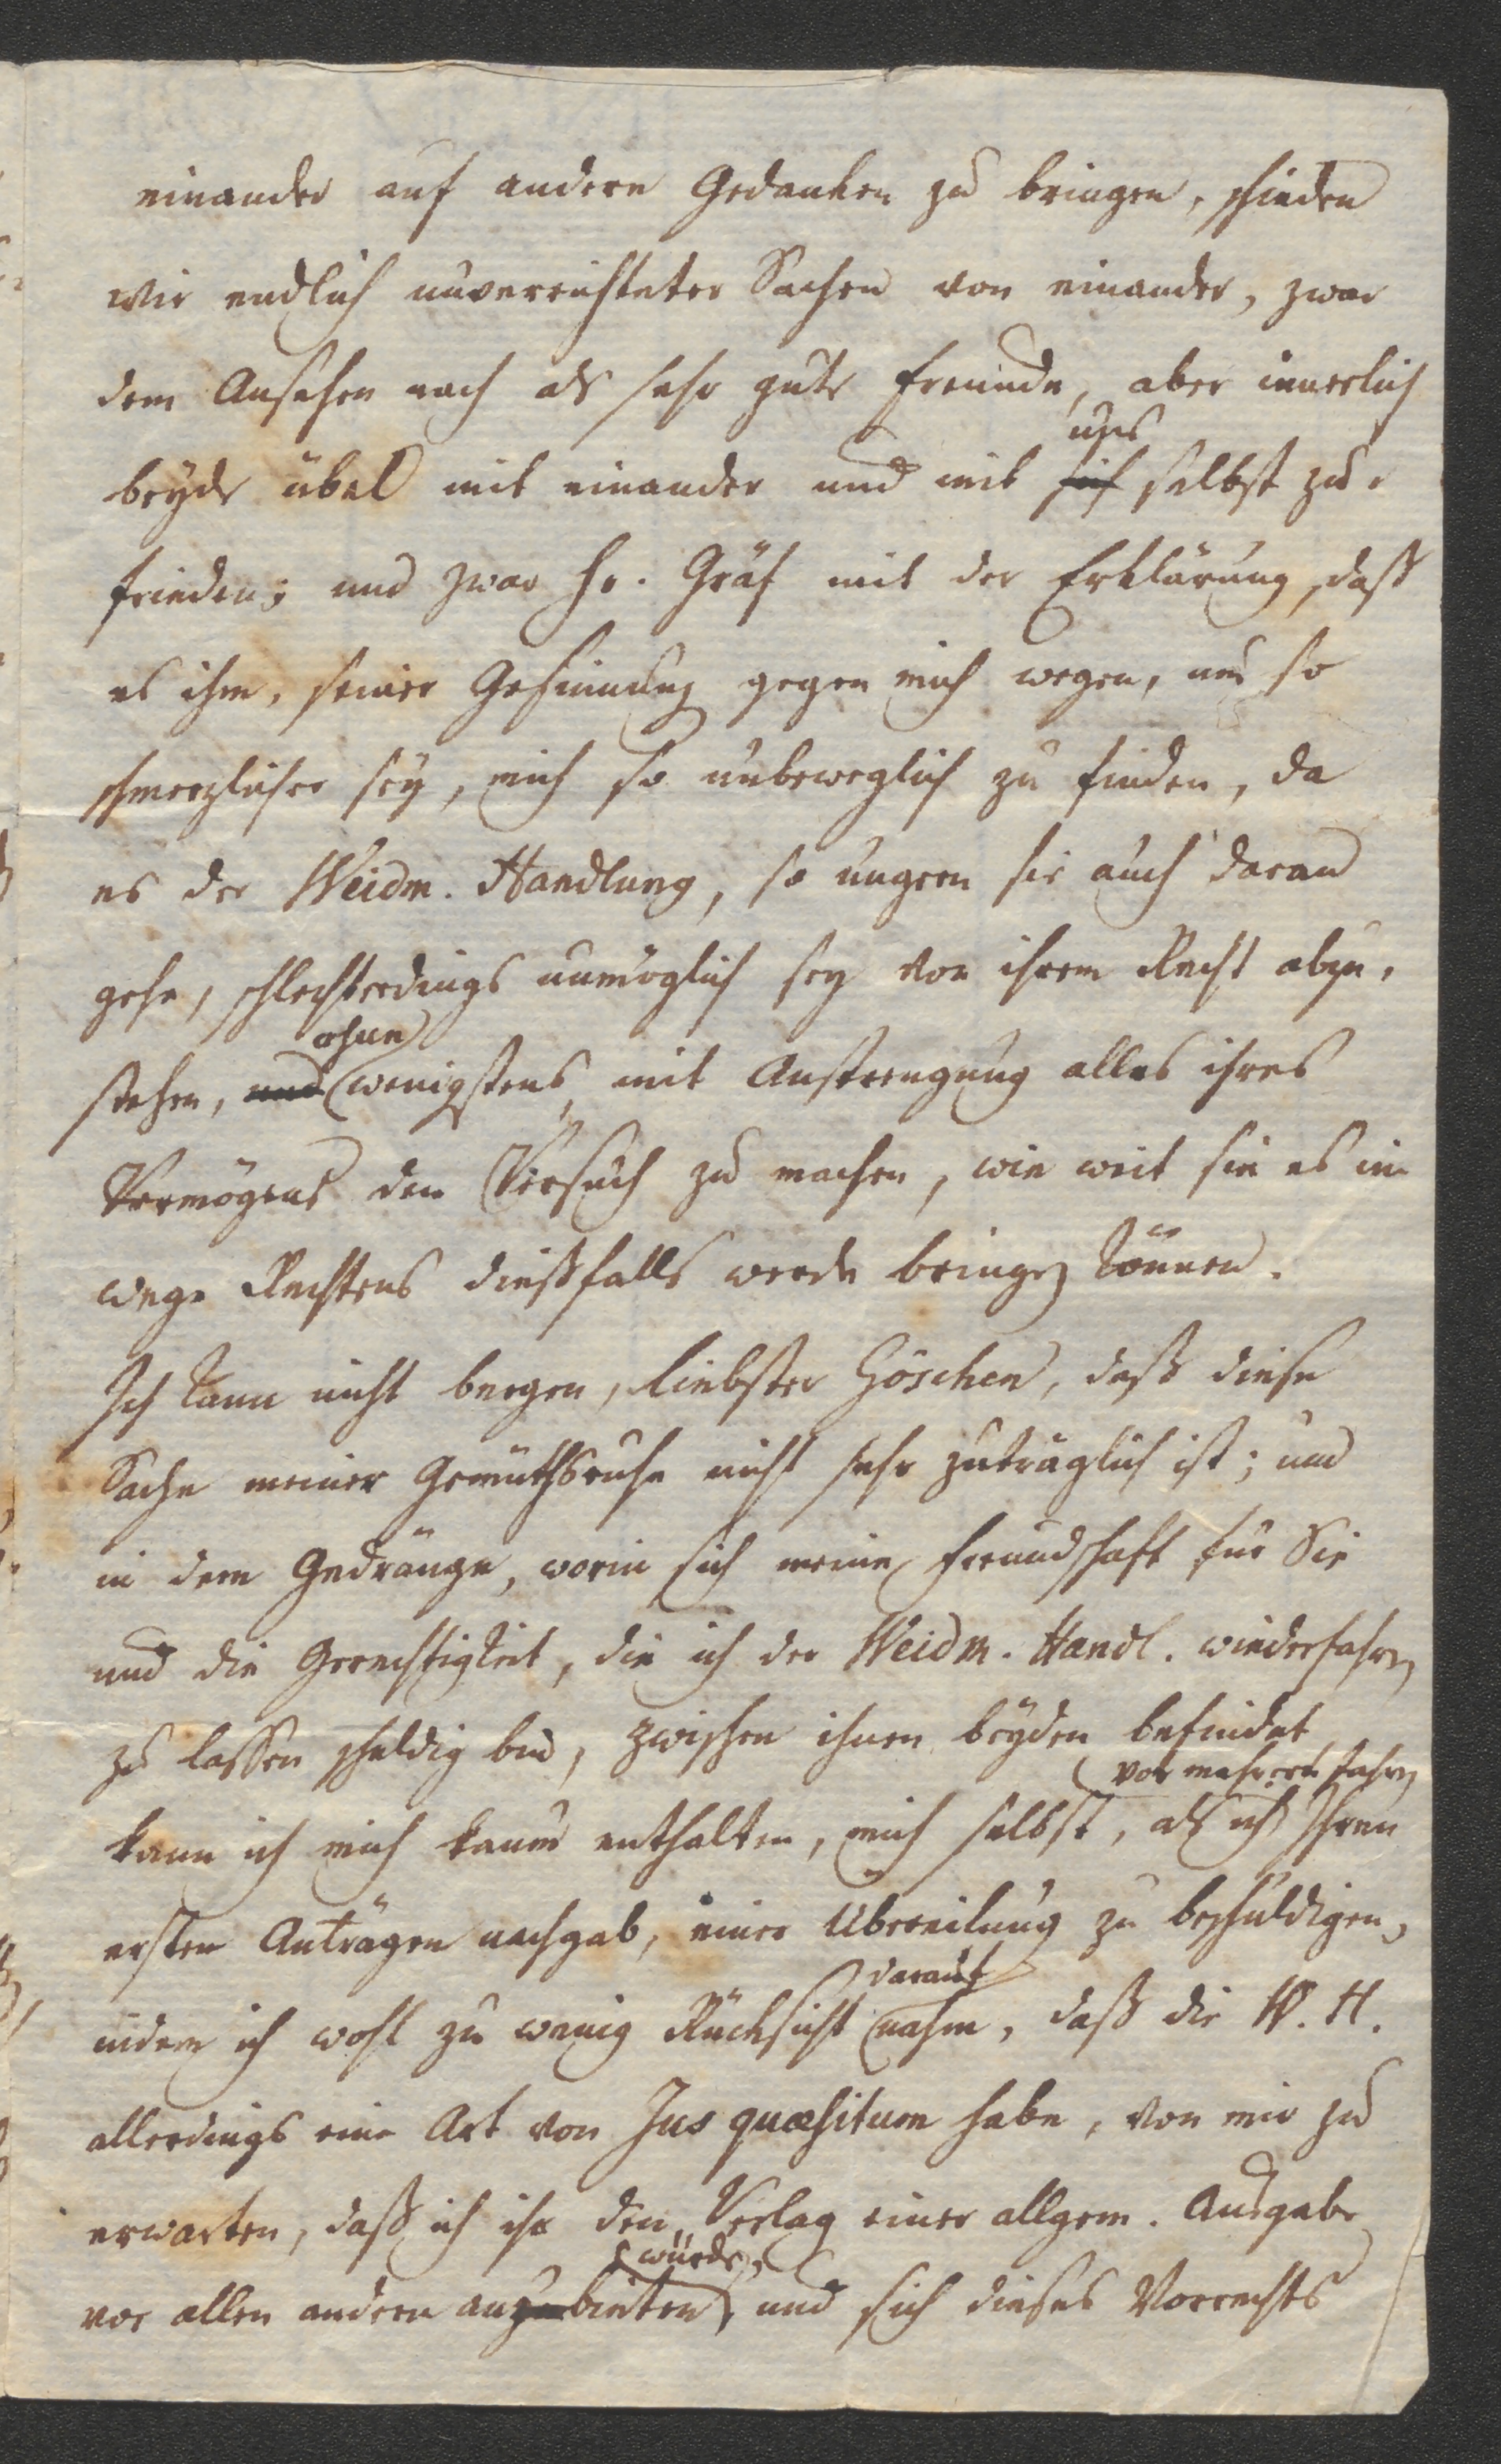 einander auf andere Gedanken zu bringen, schieden
wir endlich unverrichteter Sachen von einander, zwar
dem Ansehen nach als sehr gute Freunde, aber innerlich
uns
beyde übel mit einander und mit sich selbst zu-
frieden; und zwar Hr. Gräf mit der Erklärung, daß
es ihm, seiner Gesinnung gegen mich wegen, um so
schmerzlicher sey, mich so unbeweglich zu finden, da
es der Weidm. Handlung, so ungern sie auch daran
gehe, schlechterdings unmöglich sey von ihrem Recht abzu-
ohne
stehen, und wenigstens mit Anstrengung alles ihres
Vermögens den Versuch zu machen, wie weit sie es im
Wege Rechtens dießfalls werde bringen können.
Ich kann nicht bergen, liebster Göschen, daß diese
Sache meiner Gemüthsruhe nicht sehr zuträglich ist; und
in dem Gedränge, worin sich meine Freundschaft für Sie
und die Gerechtigkeit, die ich der Weidm. Handl. wiederfahren
zu lassen schuldig bin, zwischen ihnen beyden befindet,
vor mehrern Jahren
kann ich mich kaum enthalten, mich selbst, als ich Ihren
ersten Anträgen nachgab, einer Übereilung zu beschuldigen,
darauf
indem ich wohl zu wenig Rücksicht nahm, daß die W. H.
allerdings eine Art von Jus quæsitum habe, von mir zu
erwarten, daß ich ihr den Verlag einer allgem. Ausgabe
würde,
vor allen andern anzubieten, und sich dieses Vorrechts